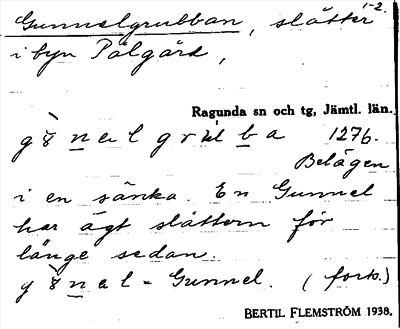 Gunnelgrubban, slåtter 1-2.
i byn Pålgård,
Ragunda sn och tg, Jämtl. län.
1276.
Belägen
i en sänka. En Gunnel
har ägt slåttern för
länge sedan.
Gunnel. (forts.)
BERTIL FLEMSTRÖM 1938.